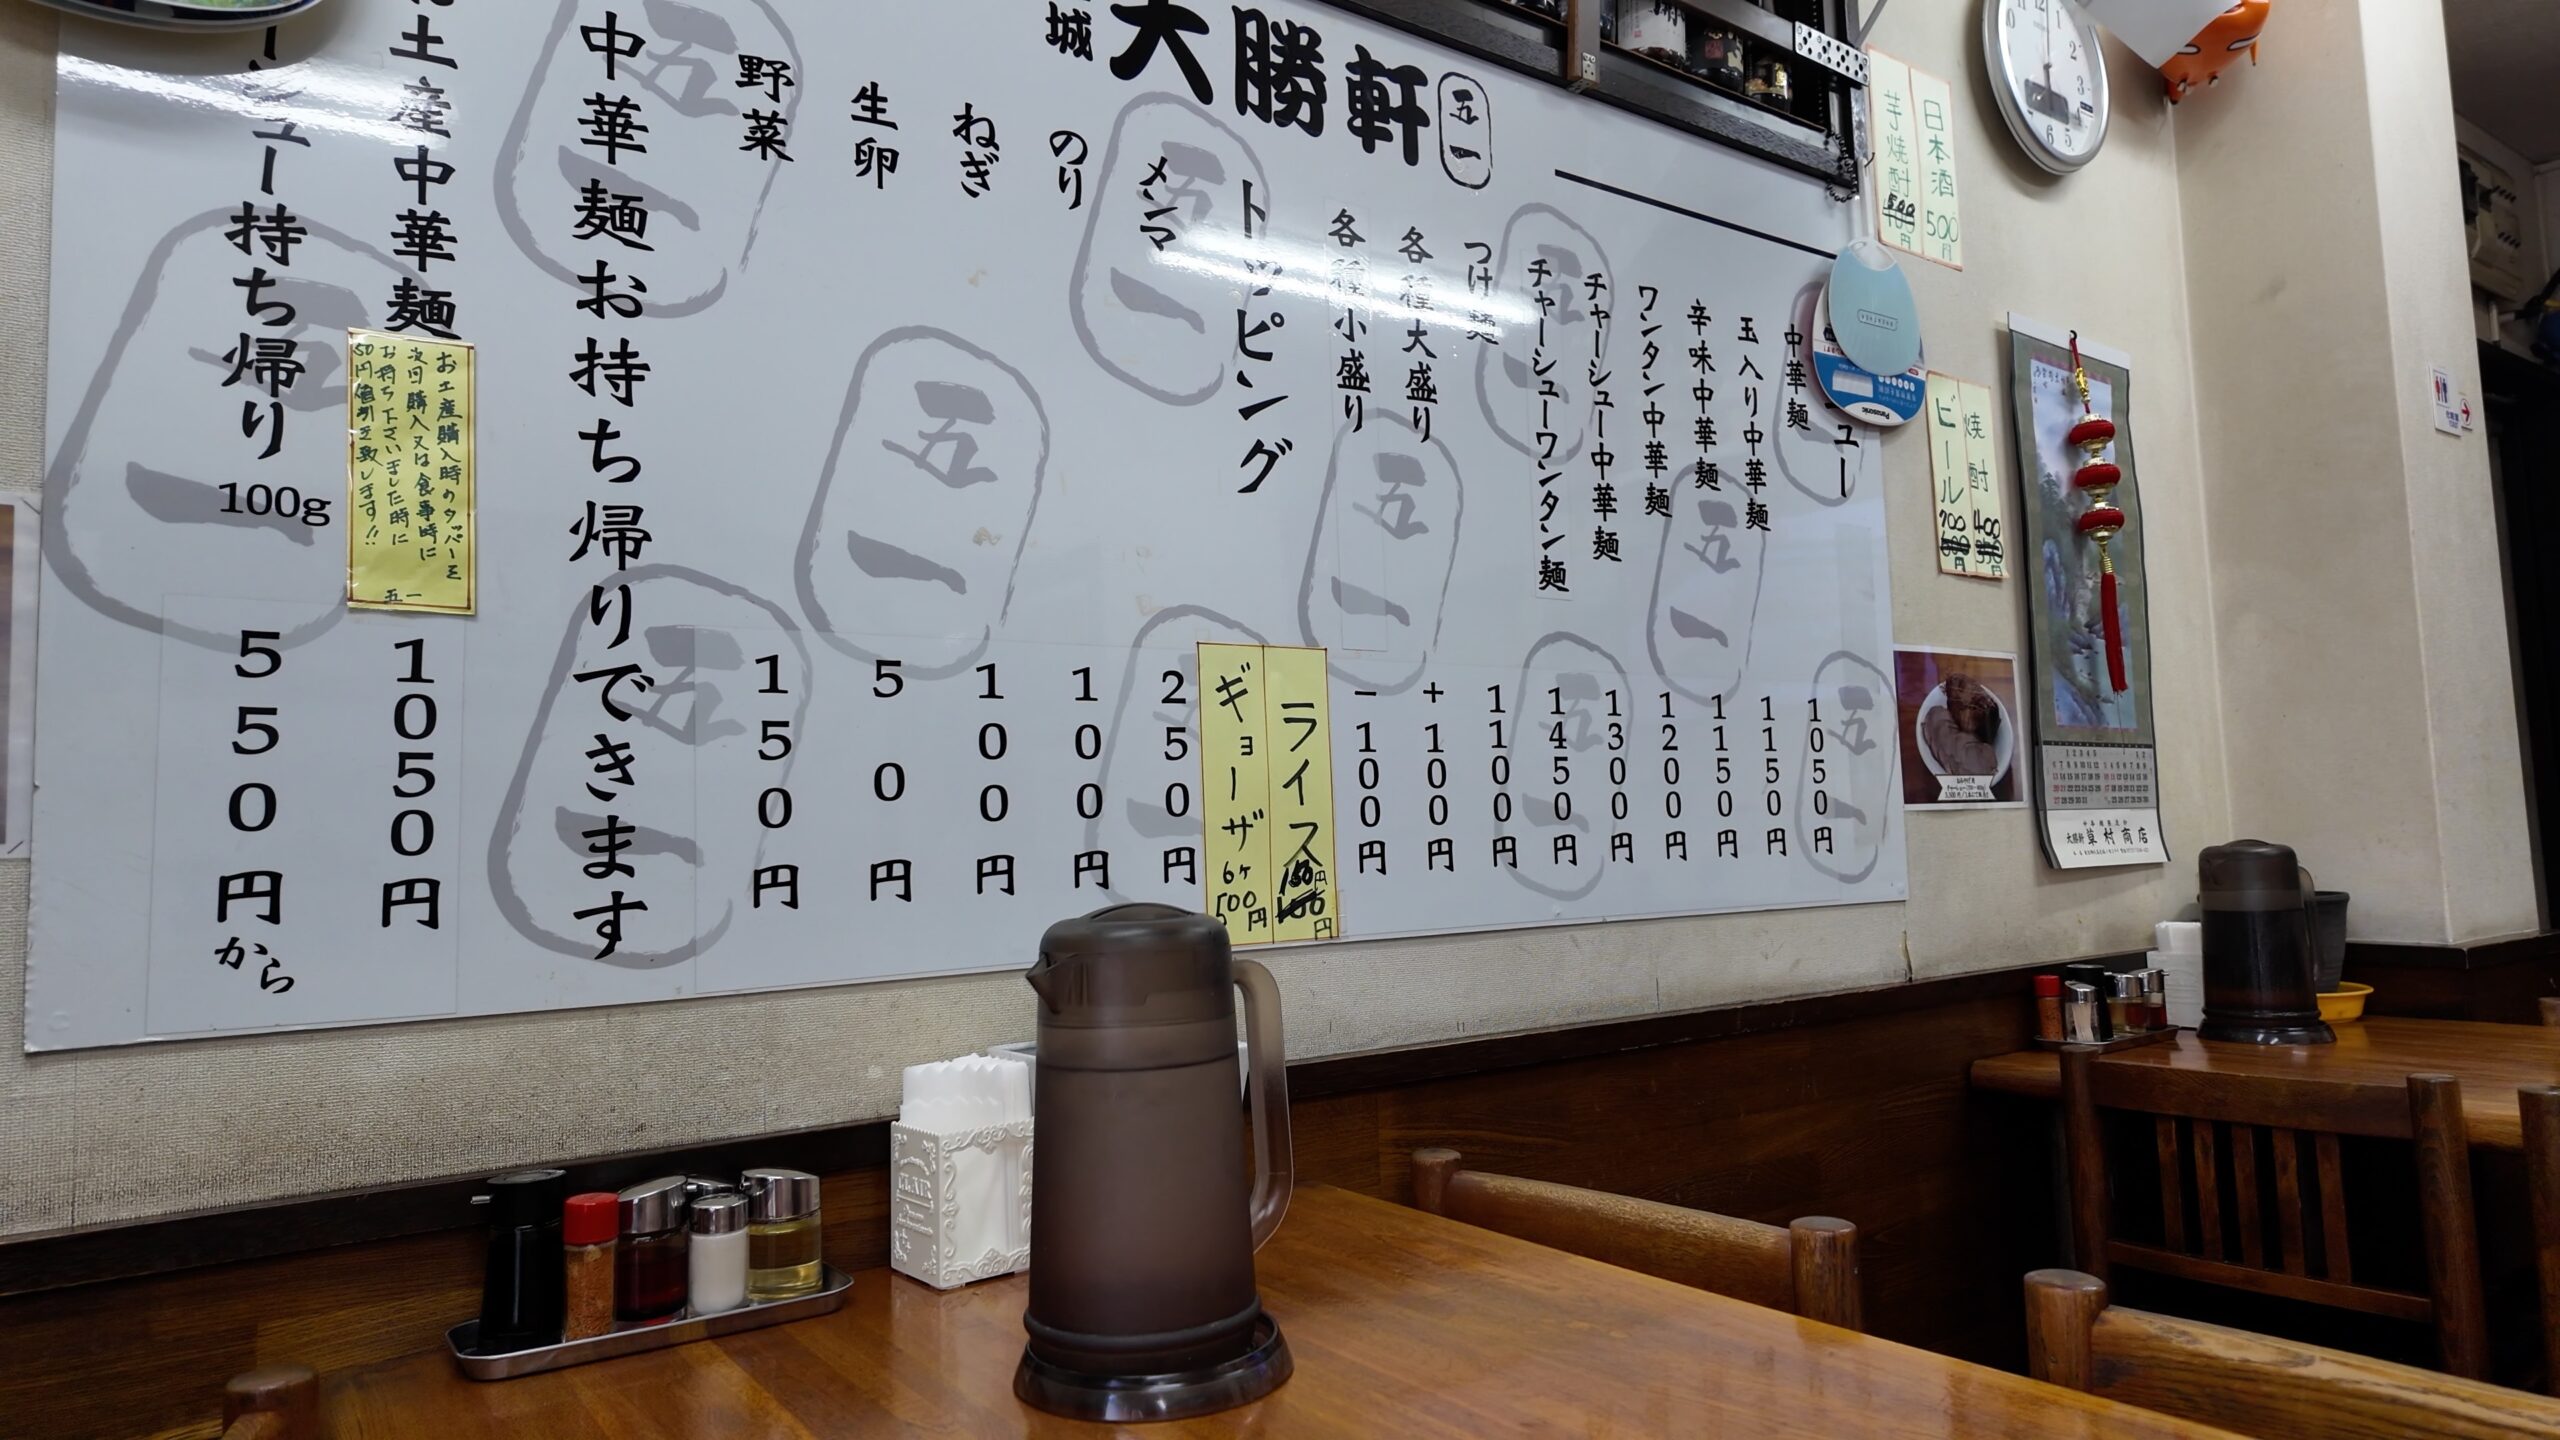 城 大勝軒 五一
ュー
中華麺 1050円
玉入り中華麺 1150円
辛味中華麺 1150円
ワンタン中華麺 1200円
チャーシュー中華麺 1300円
チャーシューワンタン麺 1450円
つけ麺 1100円
各種大盛り +100円
各種小盛り -100円
ライス 円
ギョーザ 6ヶ 500円
トッピング
メンマ 250円
のり 100円
ねぎ 100円
生卵 50円
野菜 150円
中華麺お持ち帰りできます
土産中華麺 1050円
お土産購入時のタッパーを
次回購入又は食事時に
お持ち下さいました時に
50円値引き致します!!
五一
シュー持ち帰り 100g 550円から
日本酒 500円
芋焼酎 500円
焼酎 400円
ビール 700円
Panasonic
大勝軒 草村商店